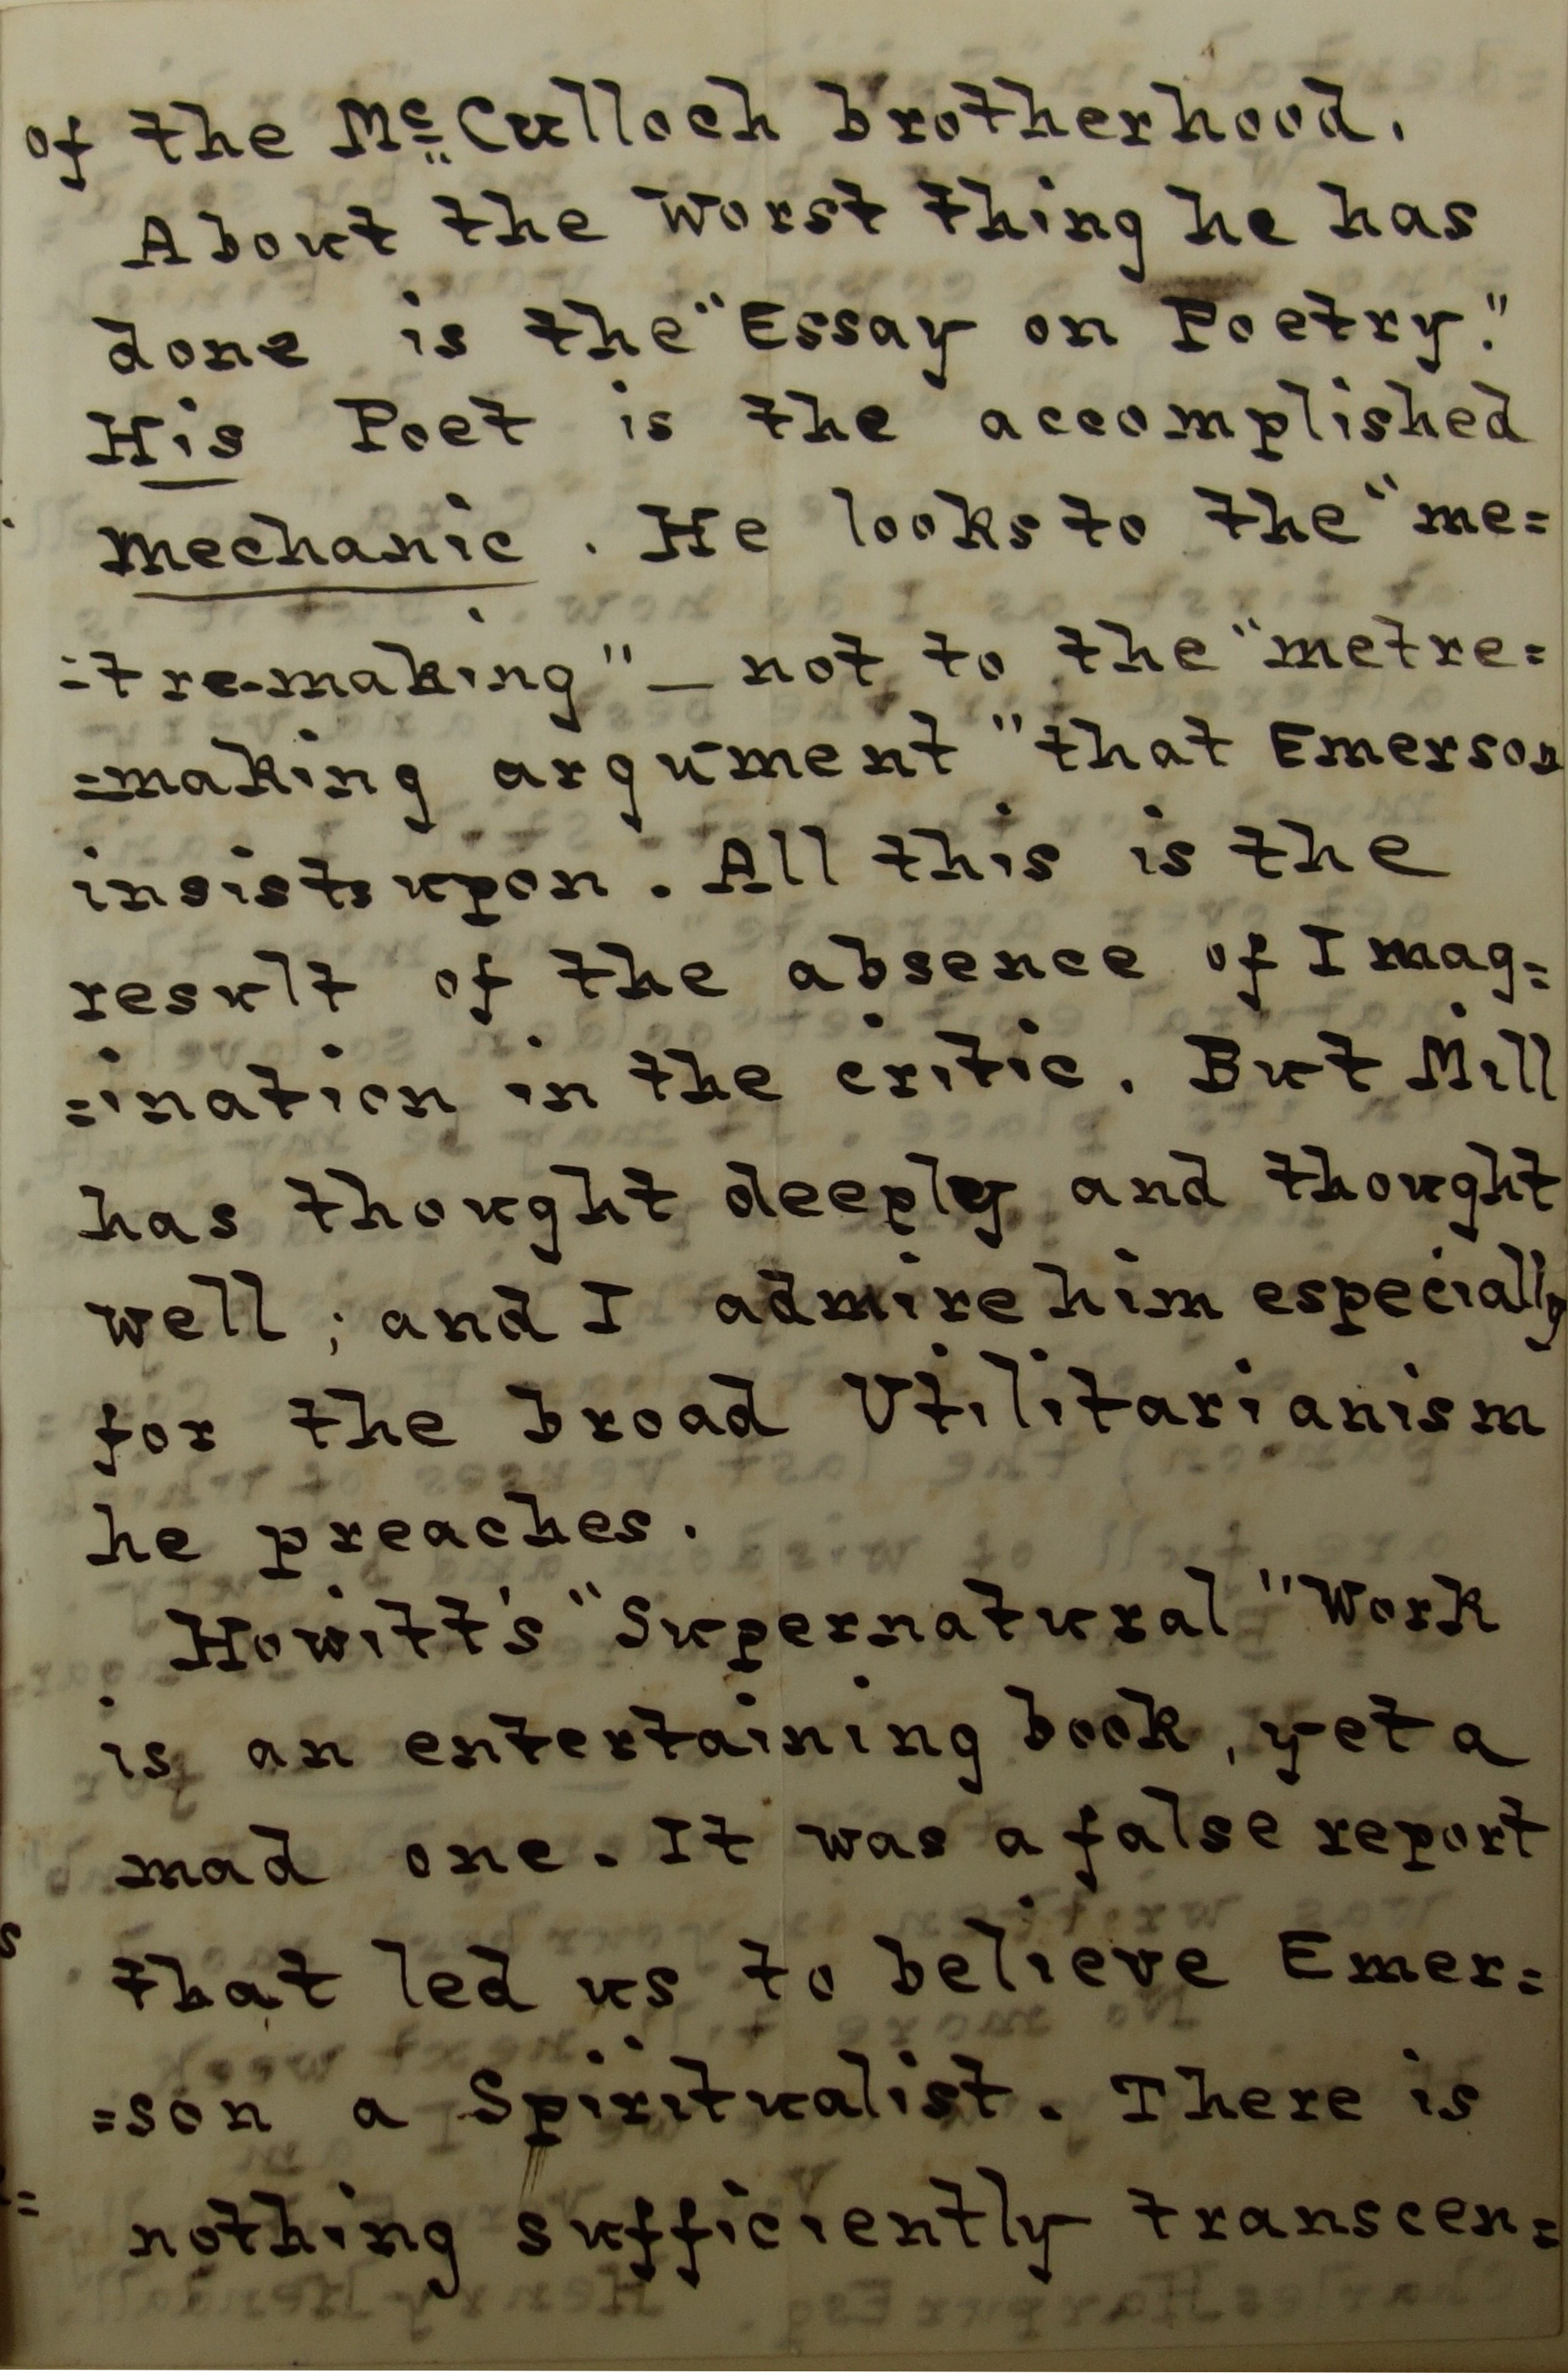 of the Mc Culloch brotherhood.
About the worst thing he has
done is the "Essay on Poetry."
His Poet is the accomplished
mechanic. He looks to the "me=
=tre-making" — not to the "metre=
=making argument" that Emerson
insists upon. All this is the
result of the absence of Imag=
=ination in the critic. But Mill
has thought deeply and thought
well; and I admire him especially
for the broad Utilitarianism
he preaches.
Howitt's "Supernatural" Work
is an entertaining book, yet a
mad one. It was a false report
that led us to believe Emer=
=son a Spiritualist. There is
nothing sufficiently transcen=